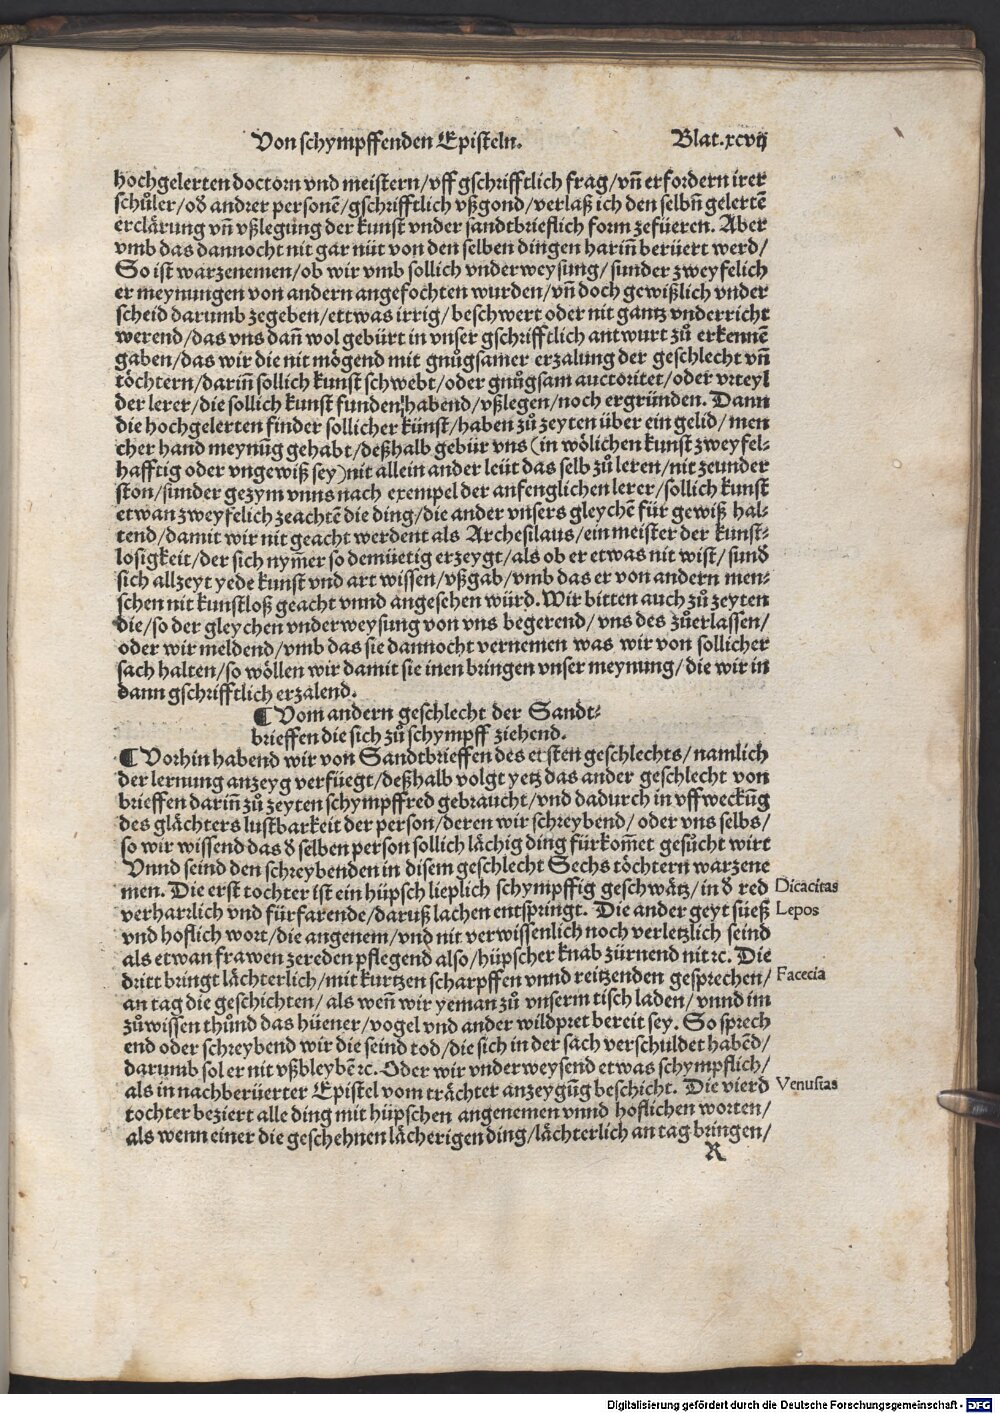 Von schympffenden Episteln. Blat.xcvij
hochgelerten doctorn vnd meistern/vff gschrifftlich frag/vn̄ erfordern irer
schůler/oð andrer personē/gschrifftlich vßgond/verlaß ich den selbn̄ gelertē
erclärung vn̄ vßlegung der kunst vnder sandtbrieflich form zefüeren. Aber
vmb das dannocht nit gar nüt von den selben dingen harin̄ berüert werd/
So ist warzenemen/ob wir vmb sollich vnderweysung/sunder zweyfelich
er meynungen von andern angefochten wurden/vn̄ doch gewißlich vnder
scheid darumb zegeben/ettwas irrig/beschwert oder nit gantz vnderricht
werend/das vns dan̄ wol gebürt in vnser gschrifftlich antwurt zů erkennē
gaben/das wir die nit mögend mit gnůgsamer erzalung der geschlecht vn̄
töchtern/darin̄ sollich kunst schwebt/oder gnůgsam auctoritet/oder vrteyl
der lerer/die sollich kunst funden habend/vßlegen/noch ergründen. Dann
die hochgelerten finder sollicher künst/haben zů zeyten über ein gelid/men
cher hand meynūg gehabt/deßhalb gebür vns (in wölichen kunst zweyfel⸗
hafftig oder vngewiß sey) nit allein ander leüt das selb zů leren/nit zeunder
ston/sunder gezym vnns nach exempel der anfenglichen lerer/sollich kunst
etwan zweyfelich zeachtē die ding/die ander vnsers gleychē für gewiß hal⸗
tend/damit wir nit geacht werdent als Archesilaus/ein meister der kunst⸗
losigkeit/der sich nym̄er so demüetig erzeygt/als ob er etwas nit wist/sunð
sich allzeyt yede kunst vnd art wissen/vßgab/vmb das er von andern men⸗
schen nit kunstloß geacht vnnd angesehen würd. Wir bitten auch zů zeyten
die/so der gleychen vnderweysung von vns begerend/vns des zůerlassen/
oder wir meldend/vmb das sie dannocht vernemen was wir von sollicher
sach halten/so wöllen wir damit sie inen bringen vnser meynung/die wir in
dann gschrifftlich erzalend.
¶ Vom andern geschlecht der Sandt⸗
brieffen die sich zů schympff ziehend.
¶ Vorhin habend wir von Sandtbrieffen des ersten geschlechts/namlich
der lernung anzeyg verfüegt/deßhalb volgt yetz das ander geschlecht von
brieffen darin̄ zů zeyten schympffred gebraucht/vnd dadurch in vffweckūg
des glächters lustbarkeit der person/deren wir schreybend/oder vns selbs/
so wir wissend das ð selben person sollich lächig ding fürkom̄et gesůcht wirt
Vnnd seind den schreybenden in disem geschlecht Sechs töchtern warzene
men. Die erst tochter ist ein hüpsch lieplich schympffig geschwätz/in ð red Dicacitas
verharrlich vnd fürfarende/daruß lachen entspringt. Die ander geyt süeß Lepos
vnd hoflich wort/die angenem/vnd nit verwissenlich noch verletzlich seind
als etwan frawen zereden pflegend also/hüpscher knab zürnend nit ꝛc. Die
dritt bringt lächterlich/mit kurtzen scharpffen vnnd reitzenden gesprechen/ Facecia
an tag die geschichten/als wen̄ wir yeman zů vnserm tisch laden/vnnd im
zůwissen thůnd das hüener/vogel vnd ander wildpret bereit sey. So sprech
end oder schreybend wir die seind tod/die sich in der sach verschuldet habēd/
darumb sol er nit vßbleybē ꝛc. Oder wir vnderweysend etwas schympflich/
als in nachberüerter Epistel vom trächter anzeygūg beschicht. Die vierd Venustas
tochter beziert alle ding mit hüpschen angenemen vnnd hoflichen worten/
als wenn einer die geschehnen lächerigen ding/lächterlich an tag bringen/
R
Digitalisierung gefördert durch die Deutsche Forschungsgemeinschaft - DFG